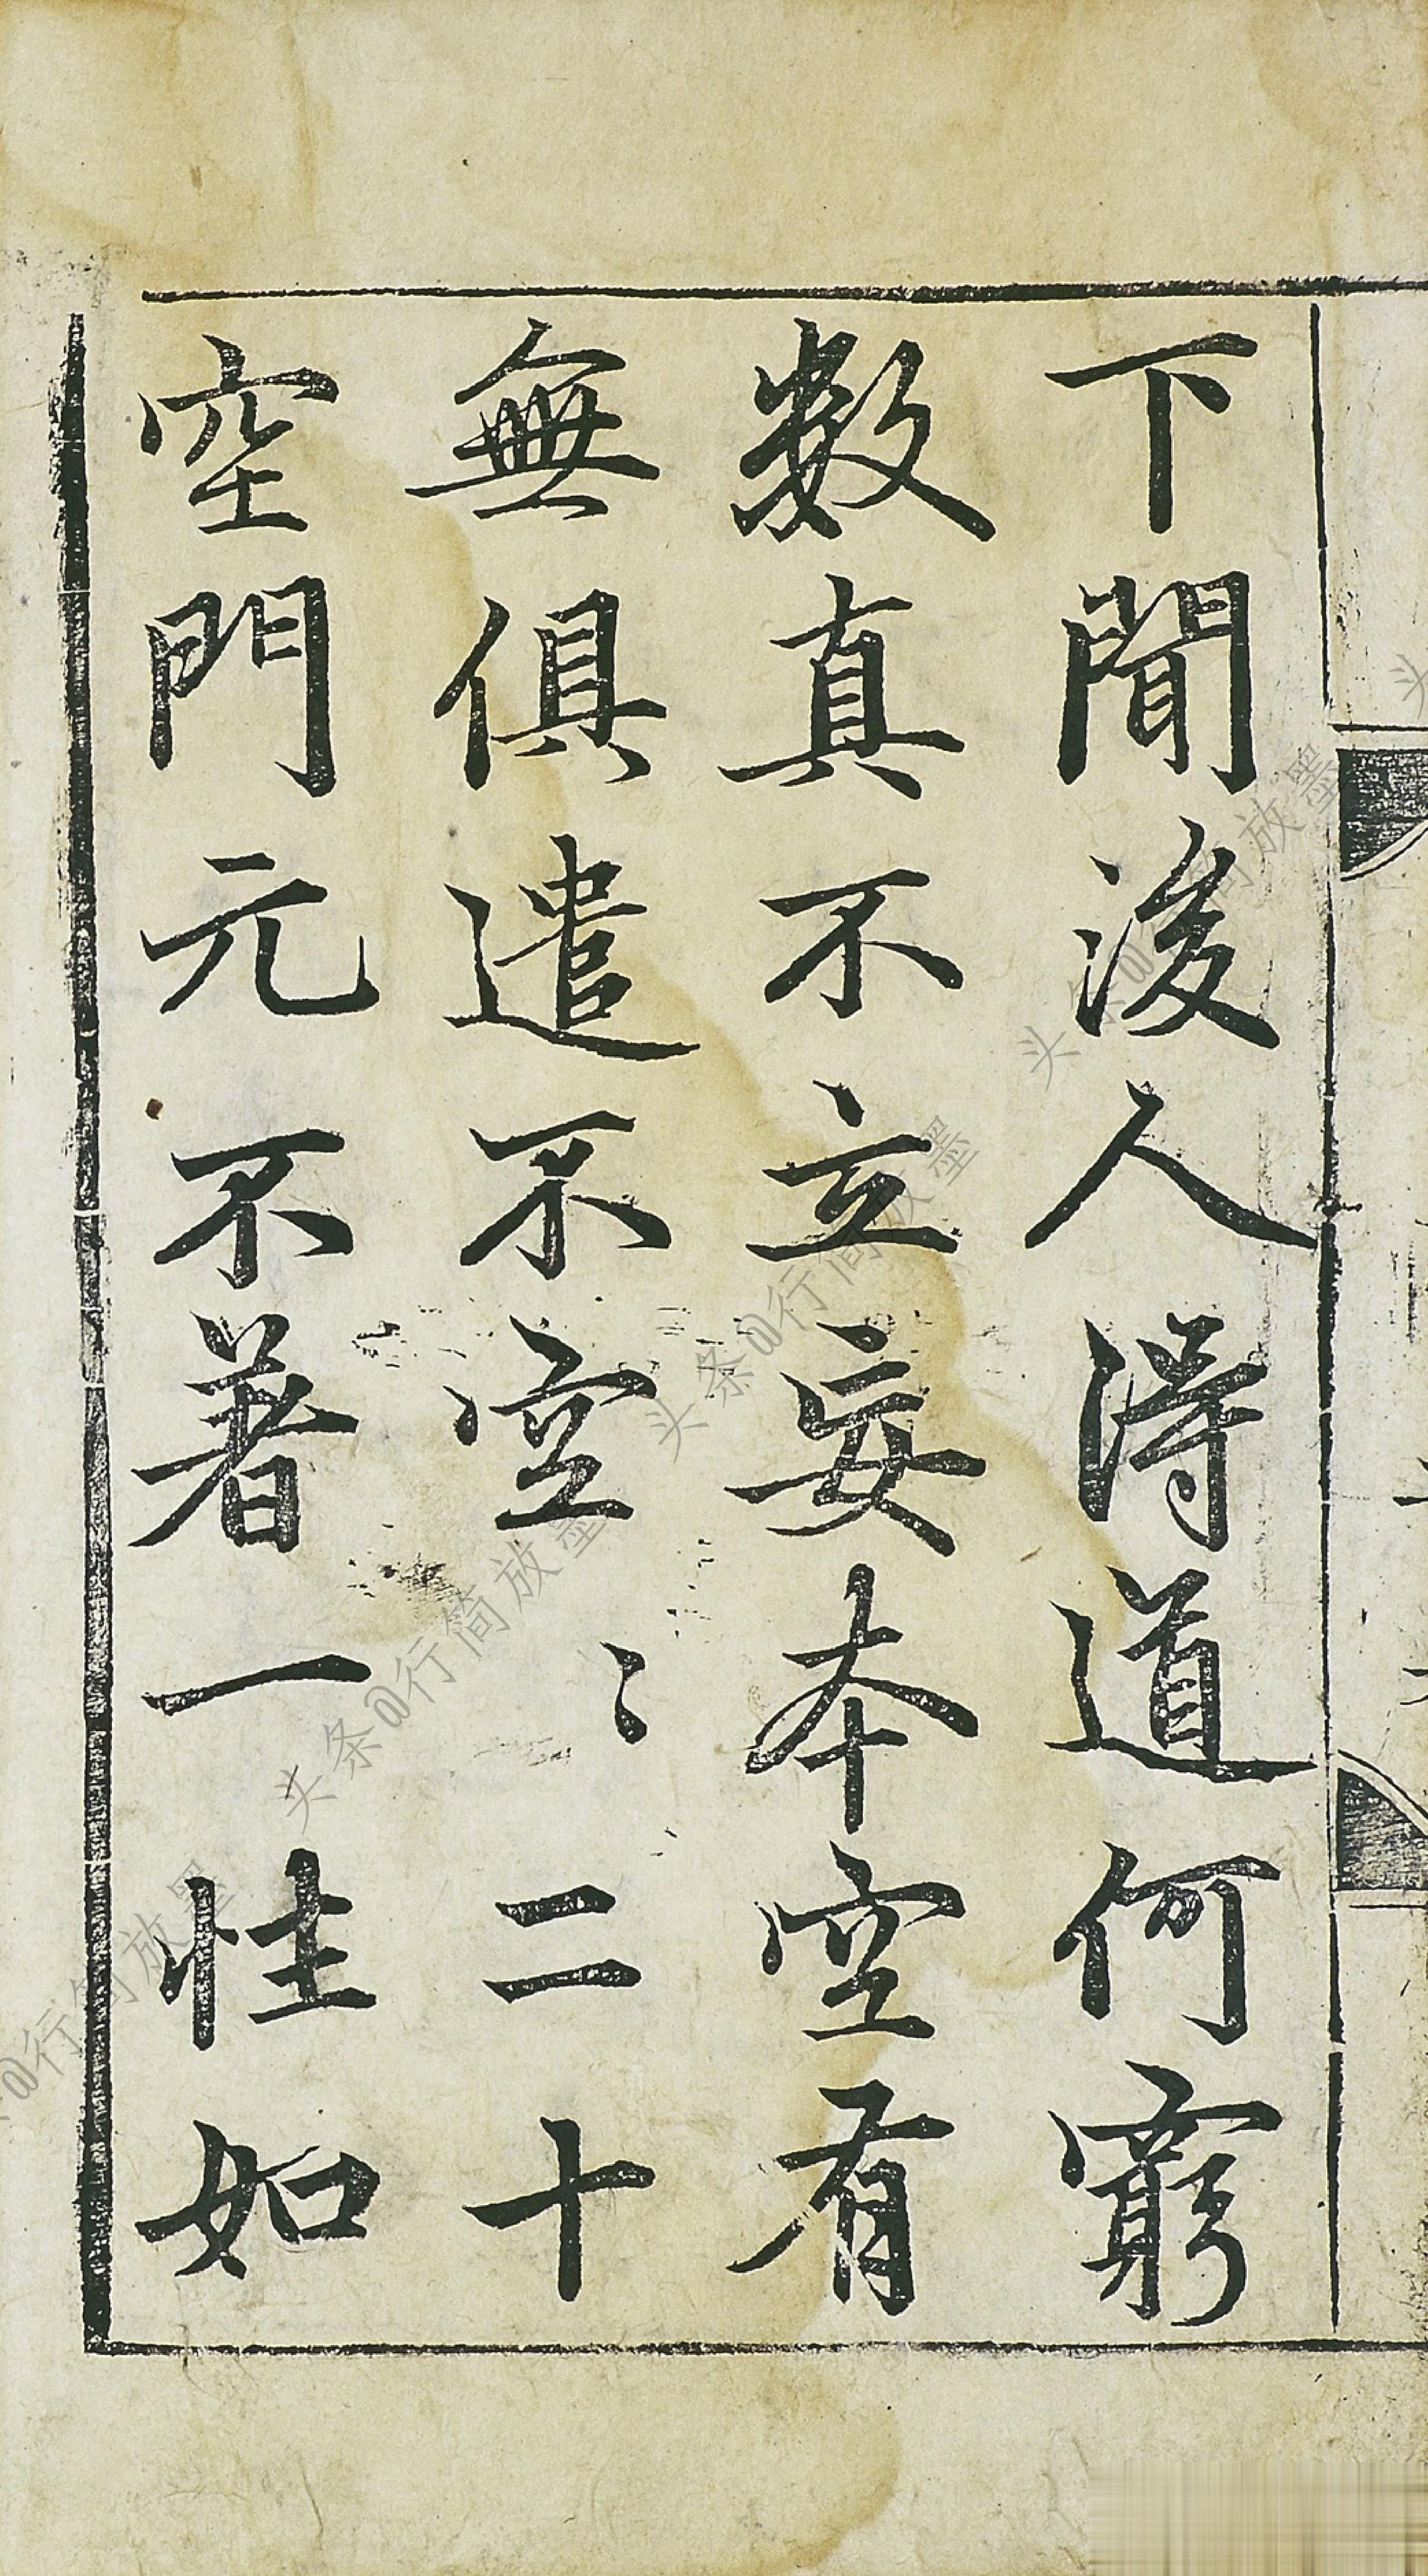 下聞後人得道何窮
數真不立妄本空有
無俱遣不空〻二十
空門元不著一性如
头条@行简放墨
头条@行简放墨
头条@行简放墨
@行简放墨
头